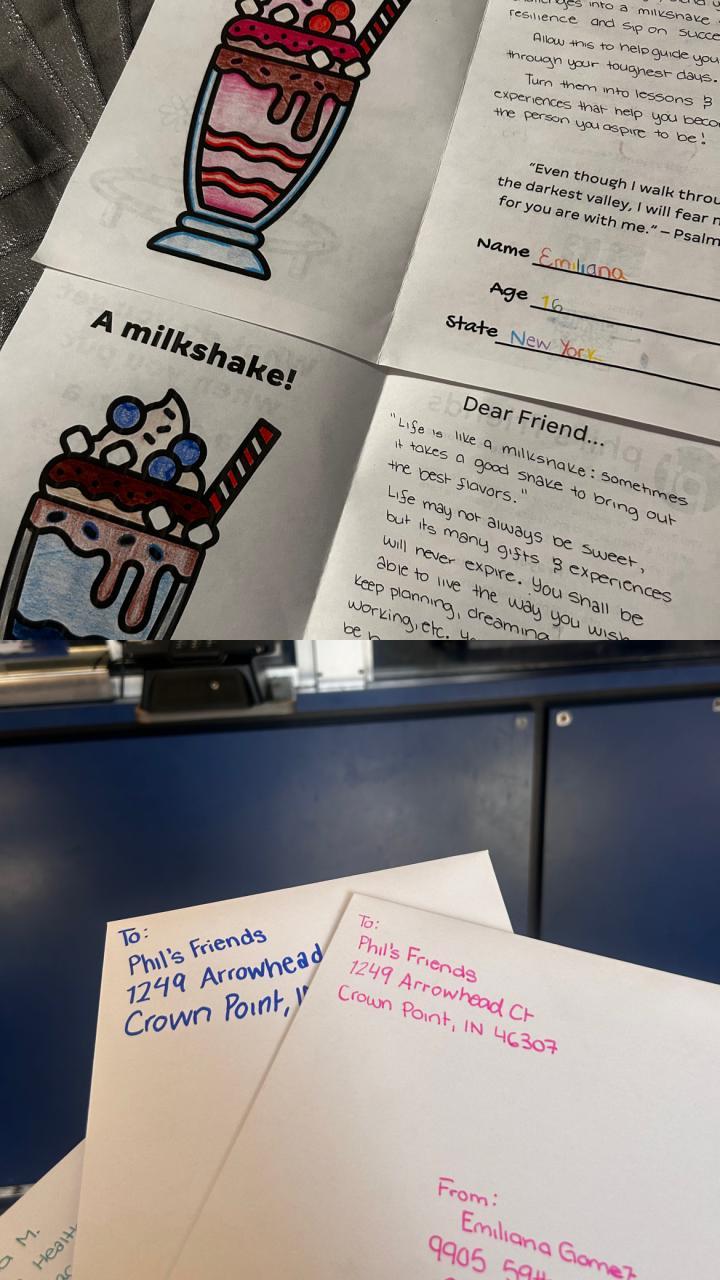 into a milkshake
resilience and sip on
Allow this to help guide you
through your toughest days.
Turn them into lessons &
experiences that help you
the person you aspire to be!
"Even though I walk
the darkest valley, I will fear
for you are with me." – Psalm
Name Emiliana
Age 16
State New York
A milkshake!
Dear Friend...
"Life is like a milkshake: sometimes
it takes a good shake to bring out
the best flavors."
Life may not always be sweet,
but its many gifts & experiences
will never expire. You shall be
able to live the way you
keep planning, dreaming
working, etc.
be
To:
Phil's Friends
1249 Arrowhead
Crown Point,
To:
Phil's Friends
1249 Arrowhead Ct
Crown Point, IN 46307
From:
Emiliana Gomez
9905
M.